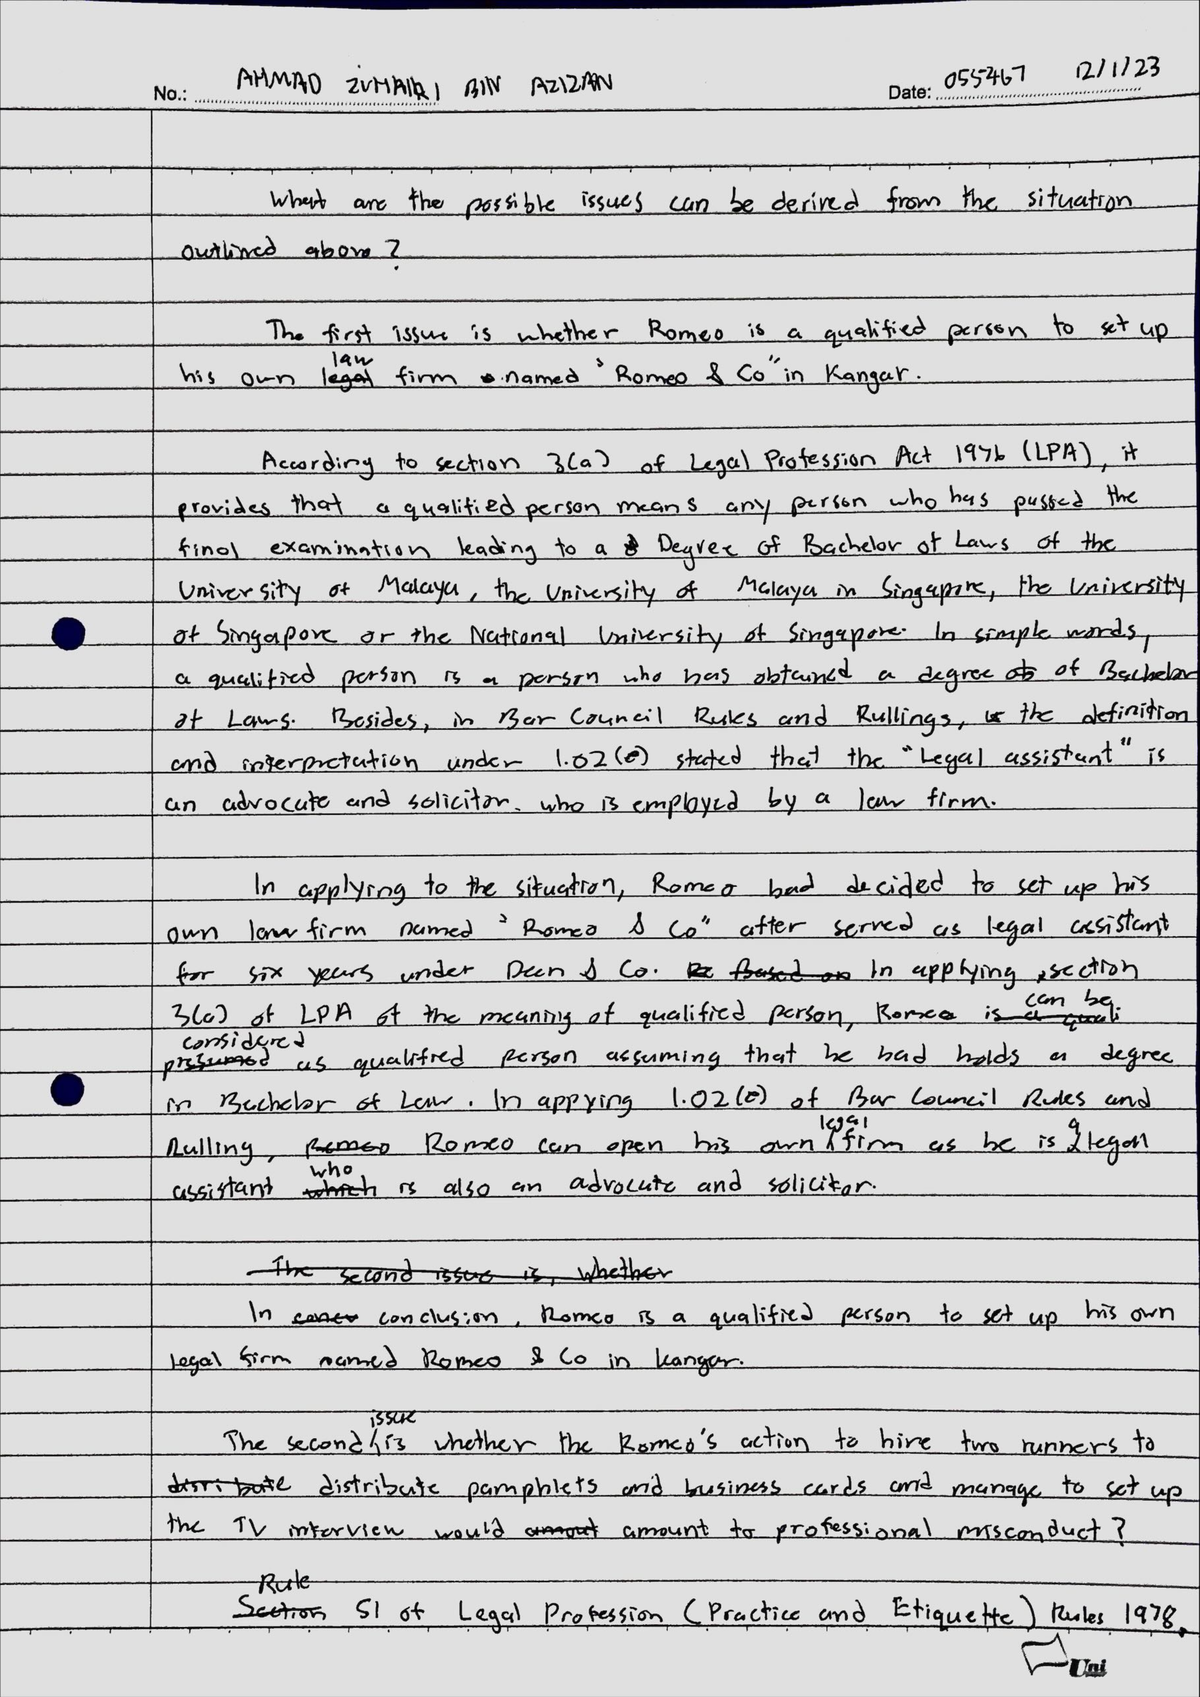 No.: AHMAD ZUHAIRI BIN AZIZAN Date: 055467 12/1/23
What are the possible issues can be derived from the situation
outlined above?
The first issue is whether Romeo is a qualified person to set up
law
his own legal firm named "Romeo & Co" in Kangar.
According to section 3(a) of Legal Profession Act 1976 (LPA), it
provides that a qualified person means any person who has passed the
final examination leading to a Degree of Bachelor of Laws of the
University of Malaya, the University of Malaya in Singapore, the University
of Singapore or the National University of Singapore. In simple words,
a qualified person is a person who has obtained a degree ob of Bachelor
of Laws. Besides, in Bar Council Rules and Rullings, the definition
and interpretation under 1.02(e) stated that the "Legal assistant" is
an advocate and solicitor. who is employed by a law firm.
In applying to the situation, Romeo had decided to set up his
own law firm named "Romeo & Co" after served as legal assistant
for six years under Deen & Co. Re Based on In applying section
can be
3(a) of LPA of the meaning of qualified person, Romeo is a quali
considered
presumed as qualified person assuming that he had holds a degree
in Bachelor of Law. In appying 1.02(e) of Bar Council Rules and
legal a
Rulling, Romeo Romeo can open his own firm as he is legal
who
assistant which is also an advocate and solicitor.
The second issue is, whether
In conclusion, Romeo is a qualified person to set up his own
legal firm named Romeo & Co in Kangar.
issue
The second is whether the Romeo's action to hire two runners to
distribute distribute pamphlets and business cards and manage to set up
the TV interview would amout amount to professional misconduct?
Rule
Section 51 of Legal Profession (Practice and Etiquette) Rules 1978.
Uni